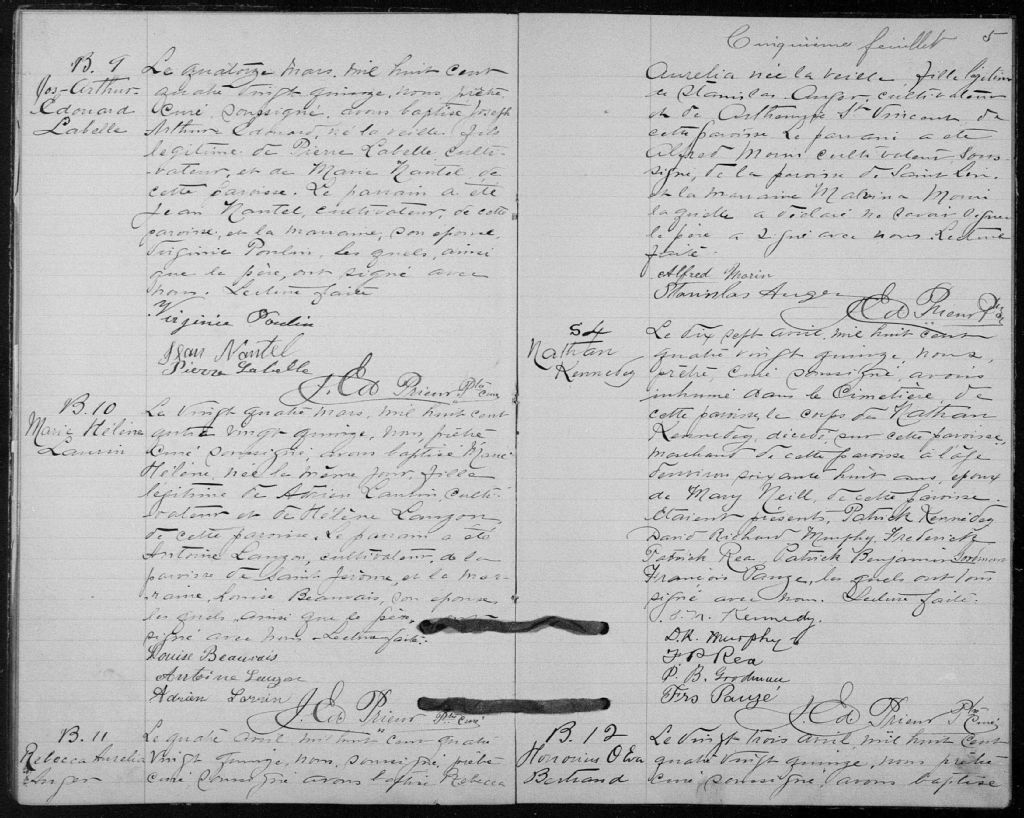 B. 9
Jos-Arthur-
Edouard
Labelle
Le quatorze mars, mil huit cent
quatre vingt quinze, nous, prêtre
curé soussigné, avons baptisé Joseph
Arthur Edouard, né la veille, fils
légitime de Pierre Labelle culti-
vateur, et de Marie Nantel de
cette paroisse. Le parrain a été
Jean Nantel, cultivateur, de cette
paroisse, et la marraine, son epouse
Virginie Poulin, les quels, ainsi
que le père, ont signé avec
nous. Lecture faite
Virginie Poulin
Jean Nantel
Pierre Labelle
J. Ed Prieur Ptre Curé
B. 10
Marie Hélène
Laurin
Le vingt quatre mars, mil huit cent
quatre vingt quinze, nous prêtre
curé soussigné, avons baptisé Marie
Hélène, née le même jour, fille
légitime de Adrien Laurin culti-
vateur et de Hélène Lauzon,
de cette paroisse. Le parrain a été
Antoine Lauzon, cultivateur, de la
paroisse de Saint Jérôme, et la mar-
raine, Louise Beauvais, son epouse
les quels, ainsi que le père, ont
signé avec nous. Lecture faite.
Louise Beauvais
Antoine Lauzon
Adrien Lorrin
J. Ed Prieur Ptre Curé
B. 11
Rebecca Aurelia
Auger
Le quatre avril mil huit cent quatre
vingt quinze, nous, soussigné, prêtre
curé soussigné avons baptisé Rebecca
Cinquième feuillet 5
Aurelia née la veille, fille légitime
de Stanislas Auger, cultivateur
et de Arthemise St Vincent de
cette paroisse. Le parrain a été
Alfred Morin cultivateur, sous-
signé, de la paroisse de Saint
et la marraine Malvina Morin
laquelle a déclaré ne savoir signer
le père a signé avec nous. Lecture
faite.
Alfred Morin
Stanislas Auger
Ed Prieur Ptre
S4
Nathan
Kennedey
Le dix sept avril, mil huit cent
quatre vingt quinze, nous,
prêtre, curé soussigné, avons
inhumé dans le Cimetière, de
cette paroisse, le corps de Nathan
Kennedey, décédé, sur cette paroisse,
marchand de cette paroisse à l'âge
d'environ soixante huit ans, epoux
de Mary Neill, de cette paroisse.
Etaient présents, Patrick Kennedey
David Richard Murphy, Frederick
Patrick Rea, Patrick Benjamin
François Pauzé, les quels ont tous
signé avec nous. Lecture faite.
Kennedy.
D. R. Murphy
F P Rea
P. B. Goodman
Frs Pauzé
J. Ed Prieur Ptre Curé
B. 12
Honorius Oliva
Bertrand
Le vingt trois avril, mil huit cent
quatre vingt quinze, nous prêtre
curé soussigné, avons baptisé